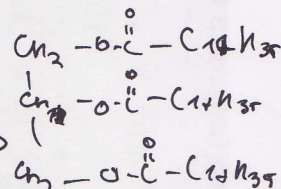 O
CH2 — O — C — C17H35
O
CH — O — C — C17H35
O
CH2 — O — C — C17H35